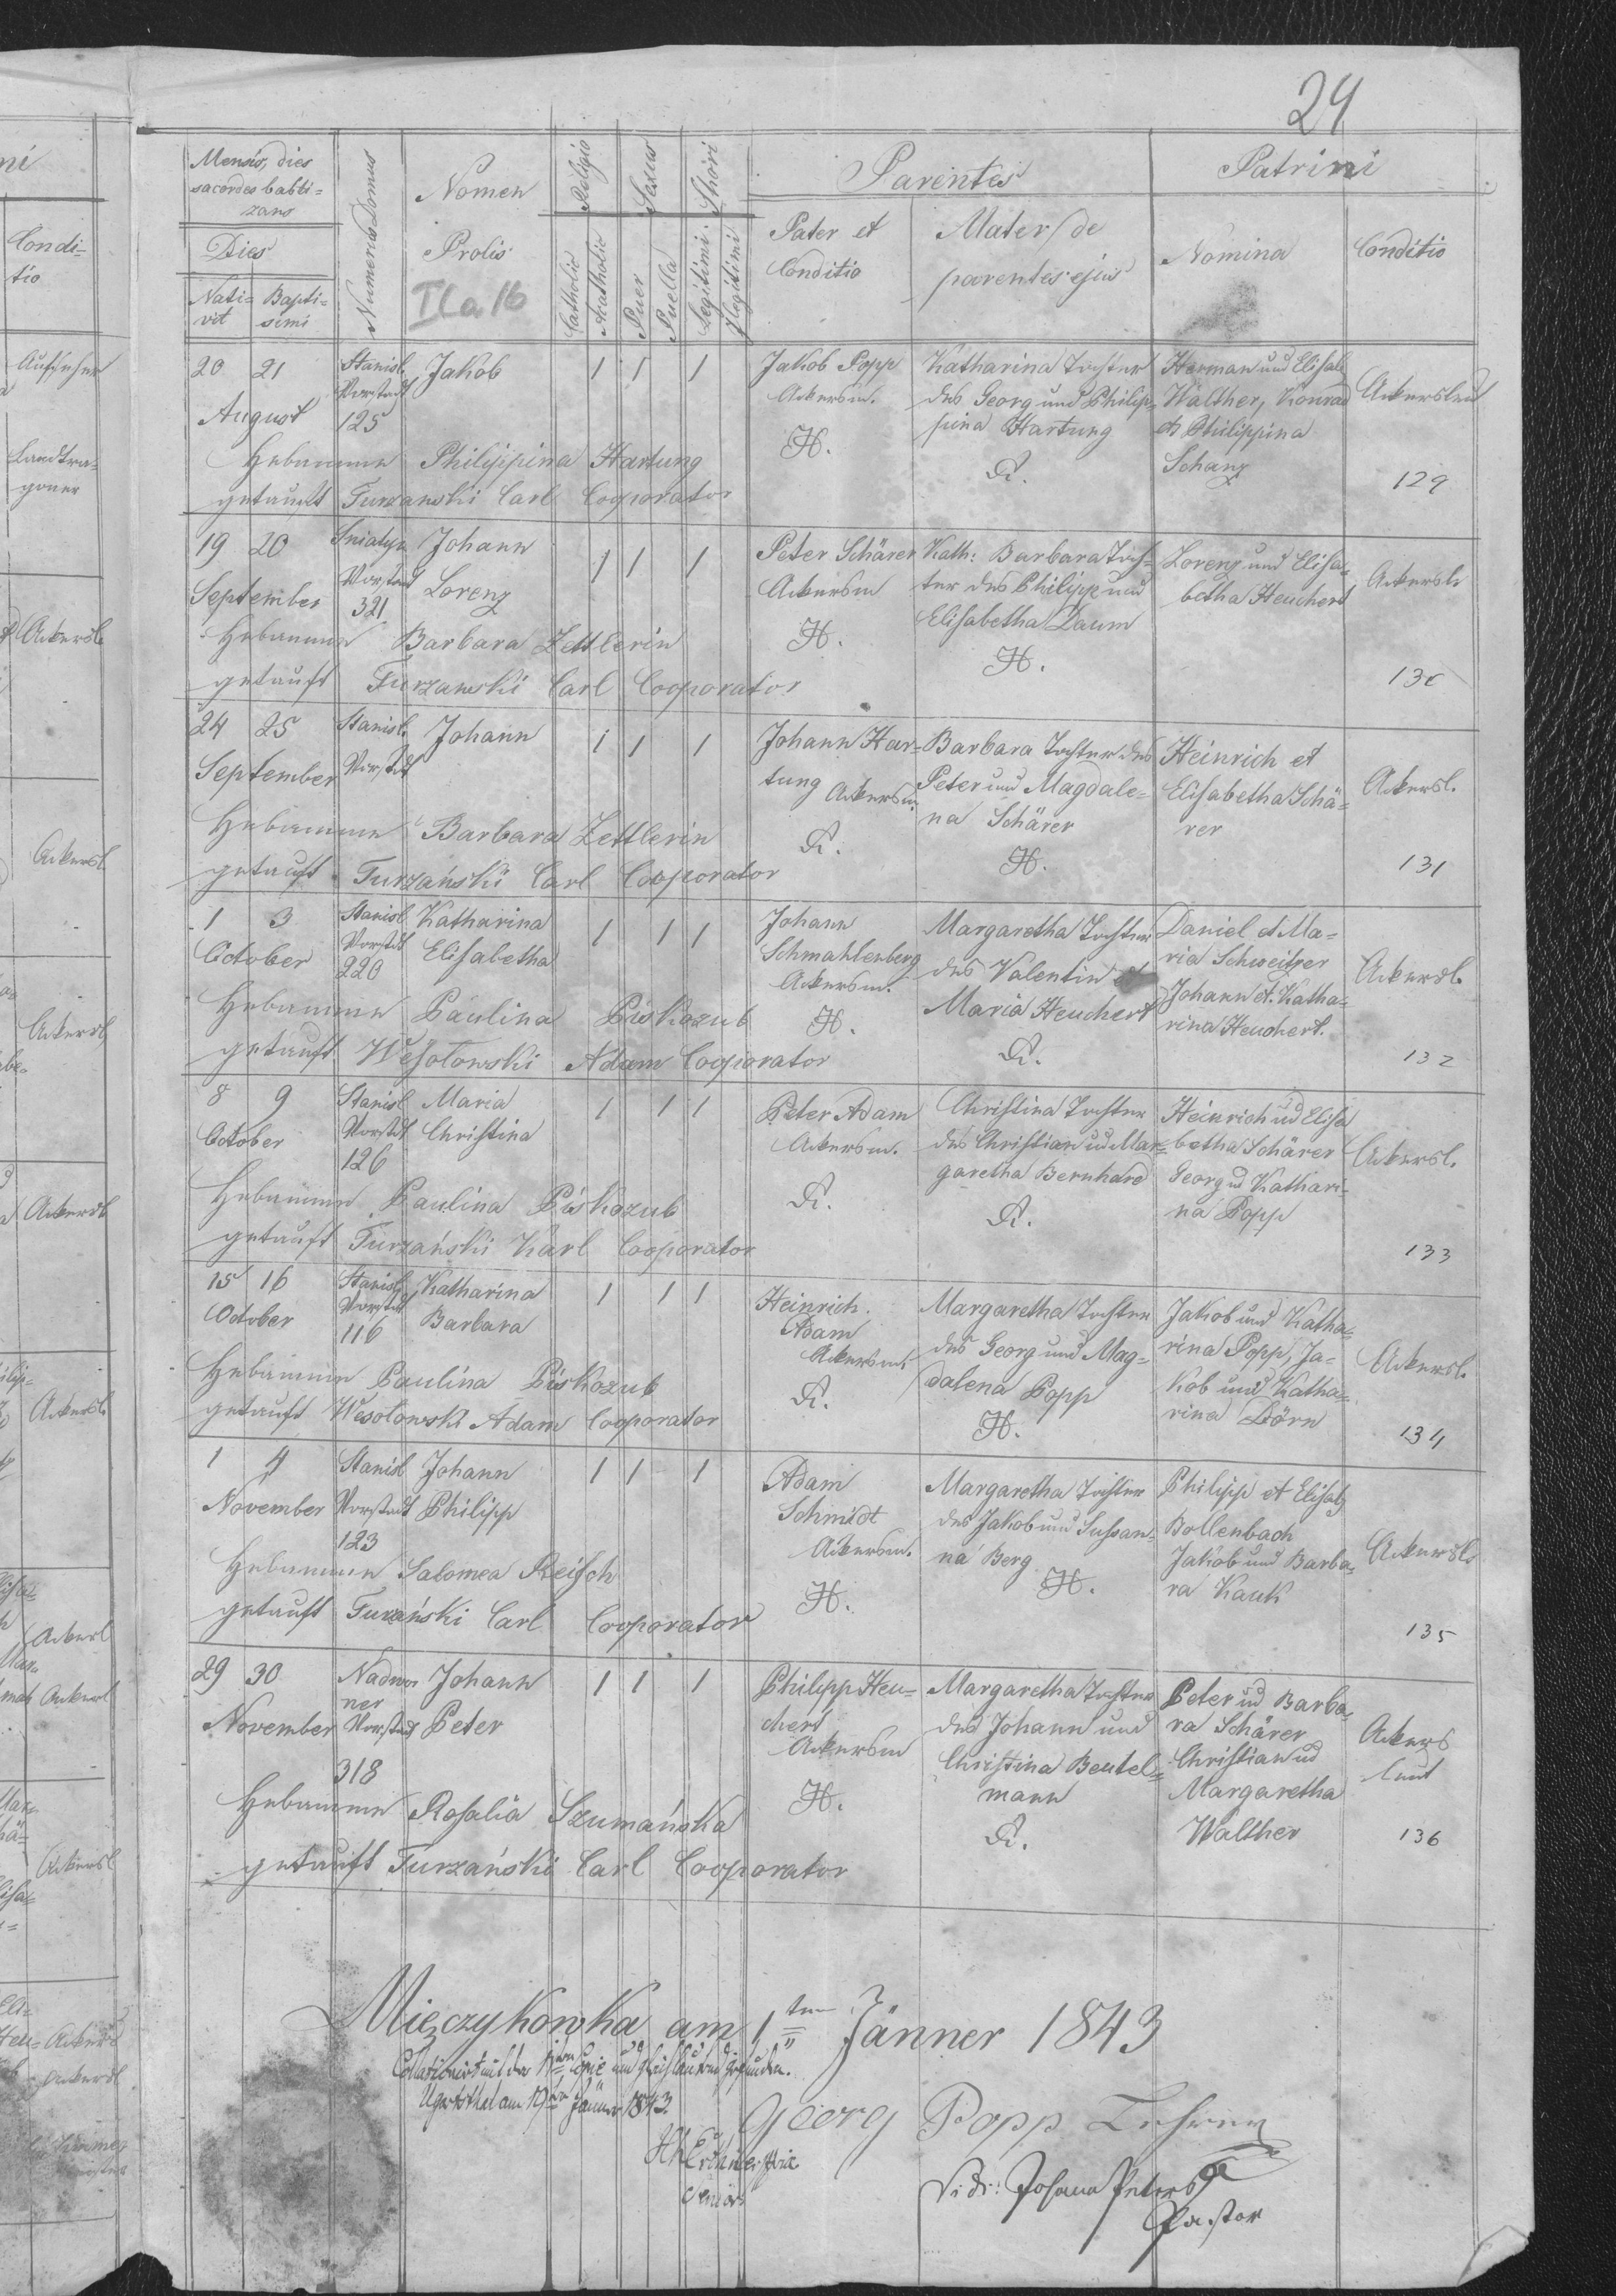 24
Mensis, dies
sacerdos babti=
zans
Dies
Nati=
vit
Bapti=
simi
Numerus Domus
Nomen
Prolis
II a 16
Religio
Catholic
Acatholic
Sexus
Puer
Puella
Thori
Legitimi
Illegitimi
Parentes
Pater et
Conditio
Mater / de
parentes ejus
Patrini
Nomina
Conditio
20 21
August
Stanisl.
Vorstadt
125
Jakob
1 1 1
Jakob Popp
Ackersm.
H.
Katharina Tochter
des Georg und Philip=
pina Hartung
R.
Herman und Elisab
Walther, Konrad
et Philippina
Schanz
Ackersleut
129
Hebamme Philippina Hartung
getauft Turzanski Carl Cooporator
19 20
September
Sniatyn
Vorstad
321
Johann
Lorenz
1 1 1
Peter Schärer
Ackersm
H.
Kath: Barbara Toch=
ter des Philipp und
Elisabetha Daum
H.
Lorenz und Elisa=
betha Heuchert
Ackersl.
130
Hebamme Barbara Zettlerin
getauft Turzanski Carl Cooporator
24 25
September
Stanisl.
Vorstdt
Johann
1 1 1
Johann Har=
tung Ackersm.
R.
Barbara Tochter des
Peter und Magdale=
na Schärer
H.
Heinrich et
Elisabetha Schä=
rer
Ackersl.
131
Hebamme Barbara Zettlerin
getauft Turzański Carl Cooporator
1 3
October
Stanisl
Vorstdt
220
Katharina
Elisabetha
1 1 1
Johann
Schmahlenberg
Ackersm.
H.
Margaretha Tochter
des Valentin et
Maria Heuchert
R.
Daniel et Ma=
ria Schweitzer
Johann et. Katha=
rina Heuchert.
Ackersl.
132
Hebamme Paulina Piskozub
getauft Wesołowski Adam Cooporator
8 9
October
Stanisl
Vorstdt
126
Maria
Christina
1 1 1
Peter Adam
Ackersm.
R.
Christina Tochter
des Christian ud Mar=
garetha Bernhard
R.
Heinrich ud Elisa
betha Schärer
Georg ud Kathari=
na Popp
Ackersl.
133
Hebamme Paulina Piskozub
getauft Turzański Karl Cooporator
15 16
October
Stanisl
Vorstdt
116
Katharina
Barbara
1 1 1
Heinrich
Adam
Ackersm.
R.
Margaretha Tochter
des Georg und Mag=
dalena Popp
H.
Jakob und Katha=
rina Popp, Ja=
kob und Katha=
rina Dörn
Ackersl.
134
Hebamme Paulina Piskozub
getauft Wesołowski Adam Cooporator
1 4
November
Stanisl
Vorstadt
123
Johann
Philipp
1 1 1
Adam
Schmidt
Ackersm.
H.
Margaretha Tochter
des Jakob und Susan=
na Berg
H.
Philipp et Elisab
Bollenbach
Jakob und Barba=
ra Kauk
Ackersl.
135
Hebamme Salomea Reisch
getauft Turzański Carl Cooporator
29 30
November
Nadwor
ner
Vorstadt
318
Johann
Peter
1 1 1
Philipp Heu=
chert
Ackersm
H.
Margaretha Tochter
des Johann und
Christina Beutel=
mann
R.
Peter ud Barba=
ra Schärer
Christian ud
Margaretha
Walther
Ackers
leut
136
Hebamme Rosalia Szumańska
getauft Turzański Carl Cooporator
Mięczykówka am 1ten Jänner 1843
Ugartsthal am Jänner 1843
Georg Popp Lehrer
Senior
Vidi: Johann Peters
Pastor